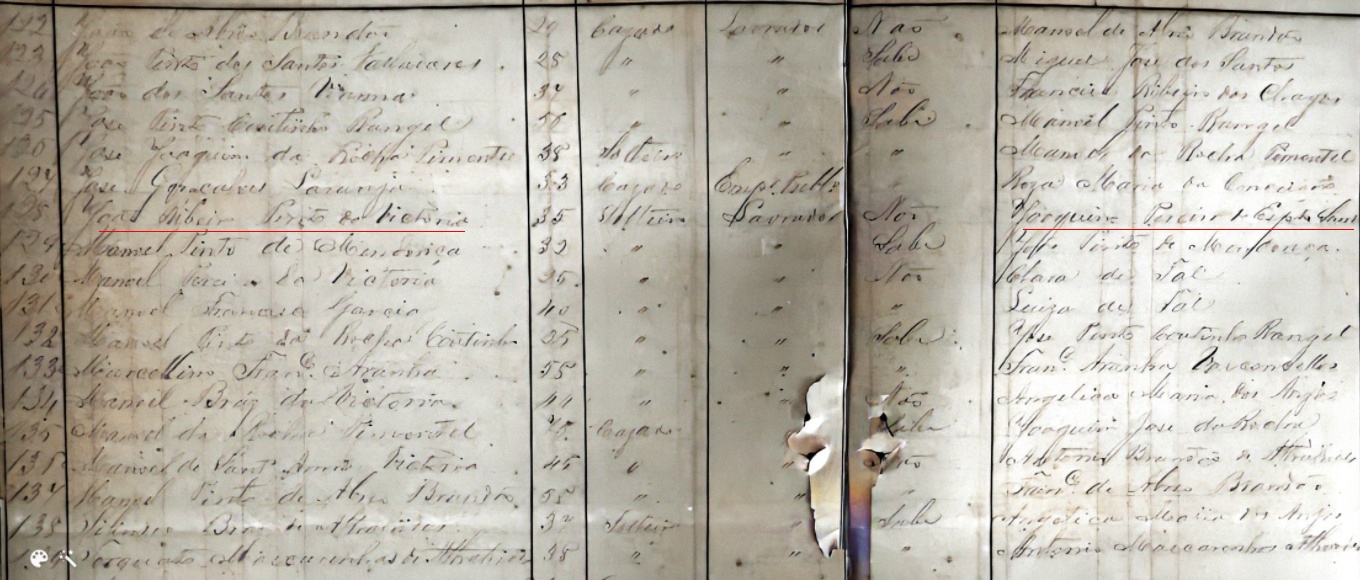 122 João de Abreu Brandão 29 Cazado Lavrador Não Manoel de Abreu Brandão
123 João Pinto dos Santos 28 " " Sabe Miguel José dos Santos
124 João dos Santos Vianna 37 " " Não Francisco Ribeiro das Chagas
125 José Pinto Coutinho Rangel 50 " " Sabe Manoel Pinto Rangel
126 José Joaquim da Rocha Pimentel 38 Solteiro " " da Rocha Pimentel
127 José Gonçalves Laranja 53 Cazado Empº Publº " Roza Maria da Conceição
128 João Ribeiro Pinto da Victoria 35 Solteiro Lavrador Não Joaquim Pereira do Espto Santo
129 Manoel Pinto de Mendonça 32 " " Sabe José Pinto de Mendonça
130 Manoel da Victoria 25 " " Não Clara de Tal
131 Manoel Francisco Garcia 40 " " " Luiza de Tal
132 Manoel Pinto da Rocha Coutinho 25 " " Sabe José Pinto Coutinho Rangel
133 Marcellino Franco Aranha 55 " " " Franco Aranha Vasconcellos
134 Manoel Braz da Victoria 44 " " Não Angelica Maria dos Anjos
135 Manoel da Rocha Pimentel Cazado Sabe Joaquim José da Rocha
136 Manoel de Sant'Anna Victoria 45 " Não Antonio Brandão de
137 Manoel Pinto de Abreu Brandão 55 " " " Franco de Abreu Brandão
138 Braz de 37 Solteiro " Sabe Angelica Maria dos Anjos
Torquato Mascarenhas de 38 " " " Antonio Mascarenhas